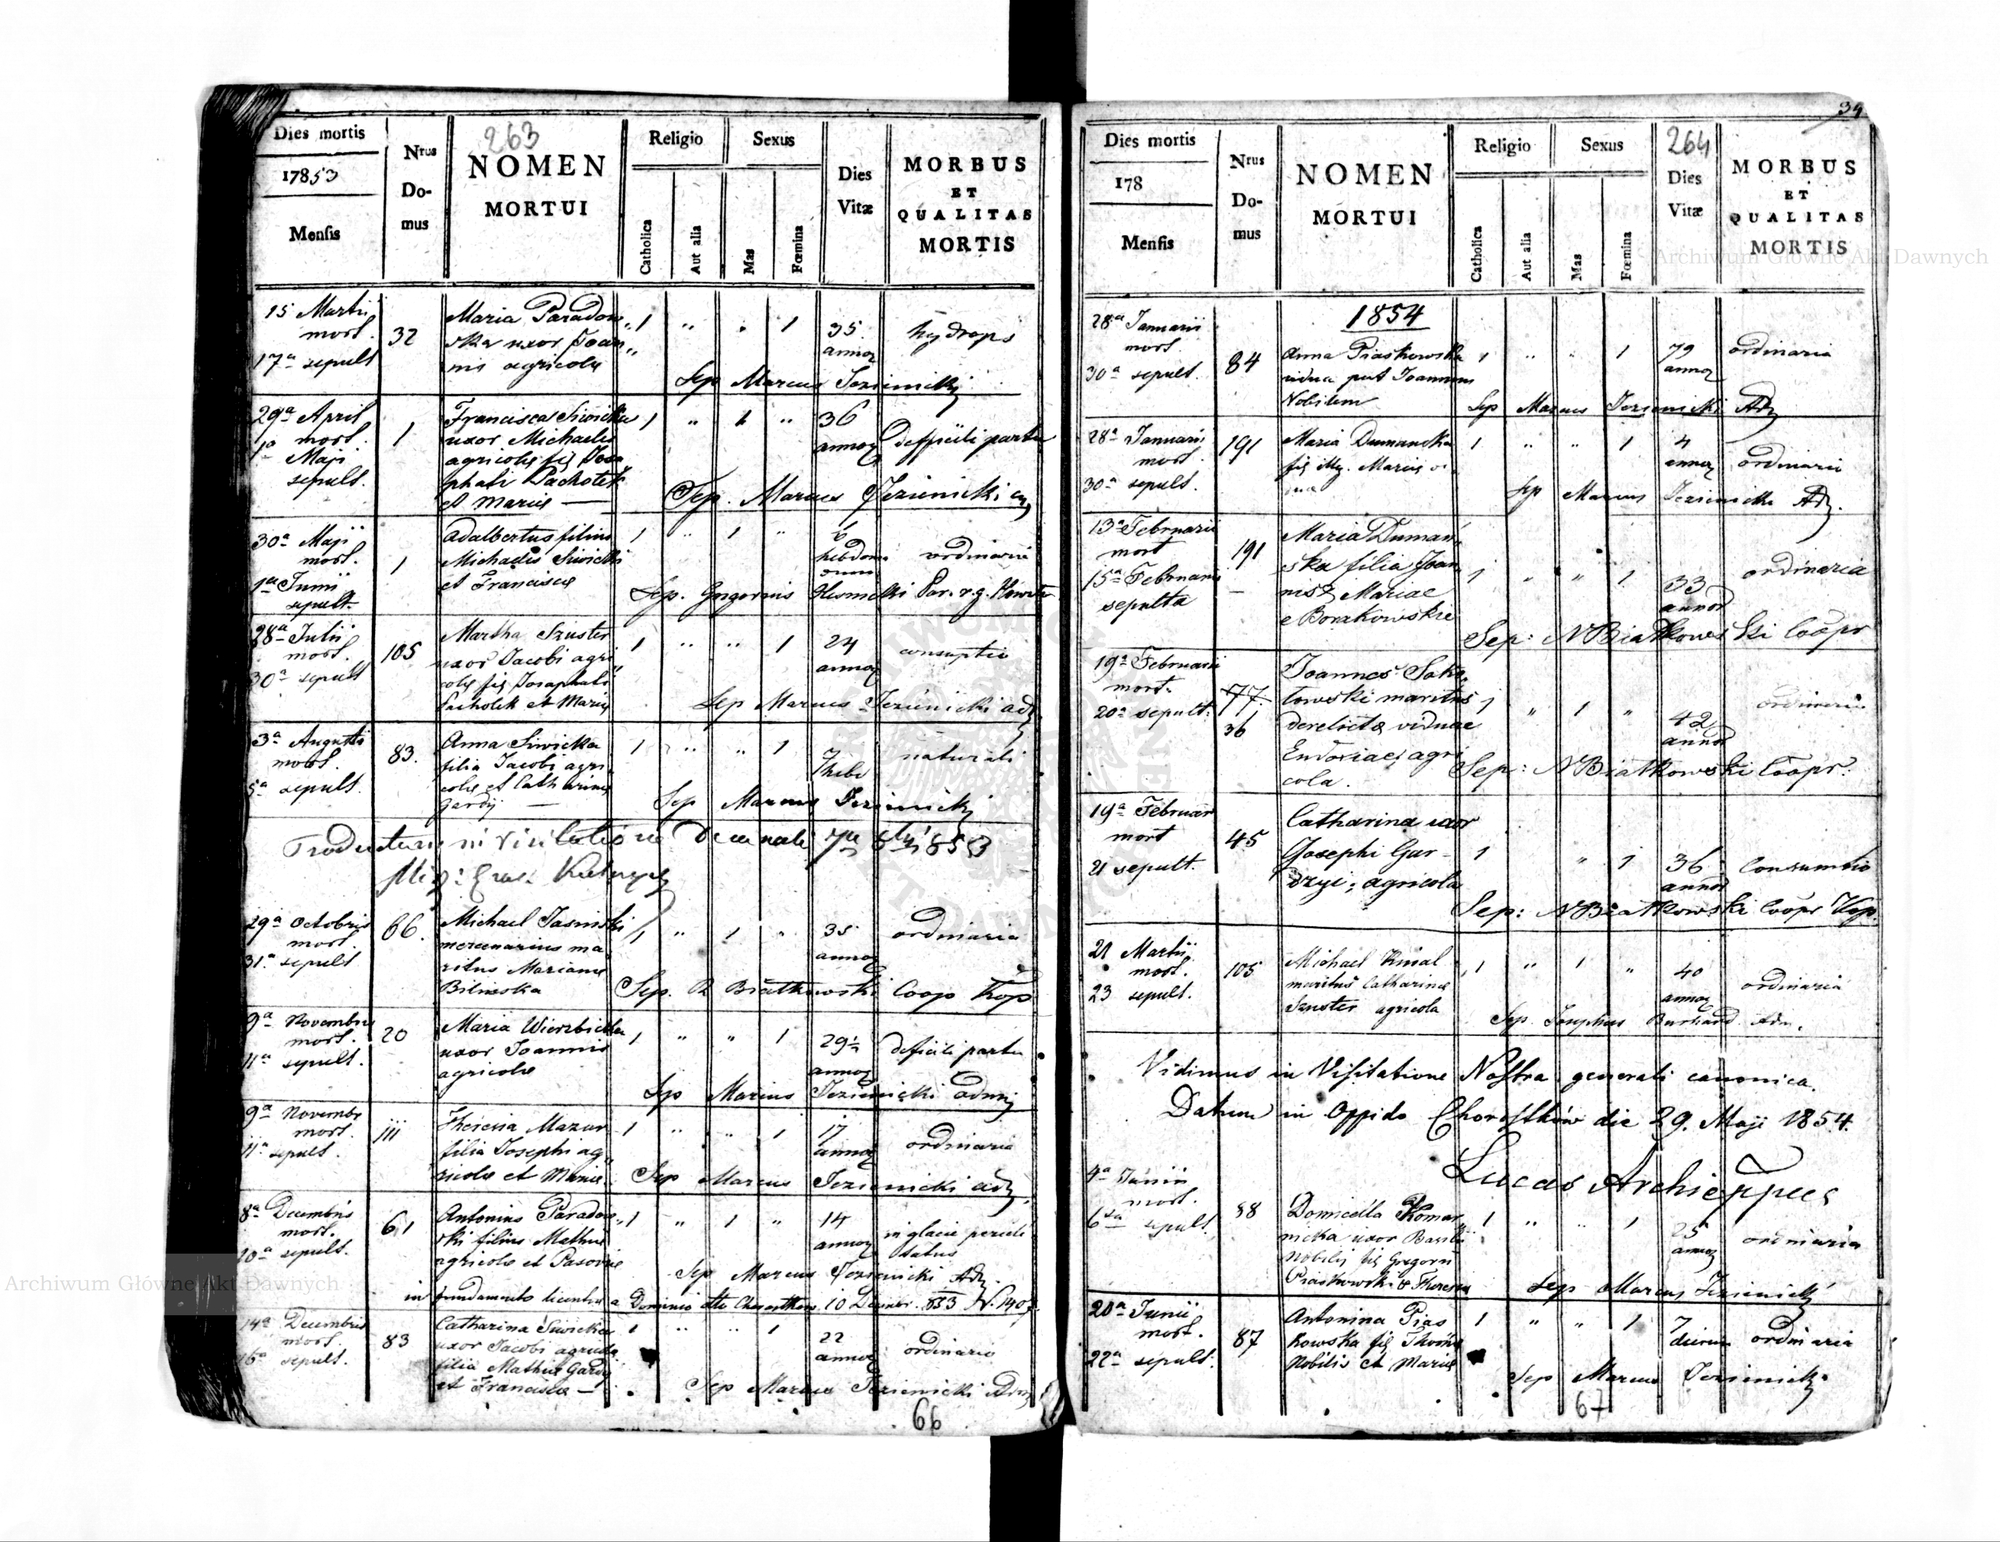 263
Dies mortis
17853
Mensis
Nrus
Do-
mus
NOMEN
MORTUI
Religio
Catholica
Aut alia
Sexus
Mas
Fœmina
Dies
Vitæ
MORBUS
ET
QUALITAS
MORTIS
15 Martii
mort.
17a sepult
32
Maria Paradow
ska uxor Joan
nis agricolæ
1 " " 1
35
annor
hydrops
Sep Marcus Jezienicki
29a April
mort.
1a Maji
sepult.
1
Francisca Siwicka
uxor Michaelis
agricolæ fil Josa
phati Pacholek
et Mariæ —
1 " 1 "
36
annor
difficili partu
Sep. Marcus Jezienicki
30a Maji
mort.
1a Junii
sepult.
1
Adalbertus filius
Michaelis Siwicki
et Francisca
1 " 1 "
6
hebdom
ordinaria
Sep. Gregorius
28a Julii
mort.
30a sepult
105
Martha Szuster
uxor Jacobi agri
colæ fil Josaphati
Pacholik et Mariæ
1 " " 1
24
annor
consuptio
Sep Marcus Jezienicki adm
3a Augusti
mort.
5a sepult.
83.
Anna Siwicka
filia Jacobi agri
colæ et Catharinæ
Gardij —
1 " " 1
7 hebd
naturali
Sep Marcus Jezienicki
Productum in visitatione Decanali 7a 8bris 853
29a Octobris
mort.
31a sepult
66.
Michael Jasinski
mercenarius ma
ritus Mariannæ
Bilinska
1 " 1 "
35
annor
ordinaria
Sep. N Białkowski Coop Kop
9a Novembris
mort.
11a sepult.
20
Maria Wierzbicka
uxor Joannis
agricolæ
1 " " 1
29
annor
difficili partu
Sep Marcus Jezienicki adm
9a Novembr
mort.
11a sepult.
111
Theresia Mazur
filia Josephi ag
ricolæ et Mariæ
1 " " 1
17
annor
ordinaria
Sep Marcus Jezienicki adm
8a Decembris
mort.
10a sepult.
61
Antonius Paradow
ski filius Mathiæ
agricolæ et
1 " 1 "
14
annor
in glacie pericli
tatus
Sep Marcus Jezienicki Adm.
in fundamento licentiæ a Dominio dtto Chorostkow 10 Decembr. 853 N. 1407
14a Decembris
mort.
16a sepult.
83
Catharina Siwicka
uxor Jacobi agricolæ
filia Mathiæ Gardij
et Francisca —
1 " " 1
22
annor
ordinaria
Sep Marcus Jezienicki Adm
66
34
264
Dies mortis
178
Mensis
Nrus
Do-
mus
NOMEN
MORTUI
Religio
Catholica
Aut alia
Sexus
Mas
Fœmina
Dies
Vitæ
MORBUS
ET
QUALITAS
MORTIS
1854
28a Januarii
mort.
30a sepult.
84
Anna Piaskowska
vidua post Joannem
Nobilem
1 " " 1
79
annor
ordinaria
Sep Marcus Jezienicki Adm
28a Januarii
mort.
30a sepult.
191
Maria Dumanska
1 " " 1
4
annor
ordinaria
Sep Marcus Jezienicki Adm.
13a Februarii
mort
15a Februarii
sepulta
191
Maria Duman
ska filia Joan
nis & Mariae
e Borzkowskie
1 " " 1
33
annor
ordinaria
Sep: N Białkowski Coopr
19a Februarii
mort.
20a sepult.
77.
36
Joannes Soko
łowski maritus
derelicta viduae
Eudoxiae agri
cola.
1 " 1 "
42
annor
ordinaria
Sep: N Białkowski Coopr.
19a Februar
mort
21 sepult.
45
Catharina uxor
Josephi Gar-
dzyi, agricola
1 " 1
36
annor
Consumtio
Sep: N Białkowski Coopr Kop.
21 Martii
mort.
23 sepult.
105
Michael Kinal
maritus Catharina
Szuster agricola
1 " 1 "
40
annor
ordinaria
Sep. Josephus Burchard Adm.
Vidimus in Visitatione Nostra generali canonica.
Datum in Oppido Chorostków die 29. Maji 1854.
Lucas Archieppus
4a Junii
mort.
6a sepult.
88
Domicella Komar
nicka uxor Basilii
Nobilis fil Gregorii
Piaskowski & Theresia
1 " " 1
25
annor
ordinaria
Sep Marcus Jezienicki
20a Junii
mort.
22a sepult.
87
Antonina Pias
kowska fil
Nobilis et Mariæ
1 " " 1
7
dierum
ordinaria
Sep Marcus Jezienicki
67
Archiwum Główne Akt Dawnych
Archiwum Główne Akt Dawnych